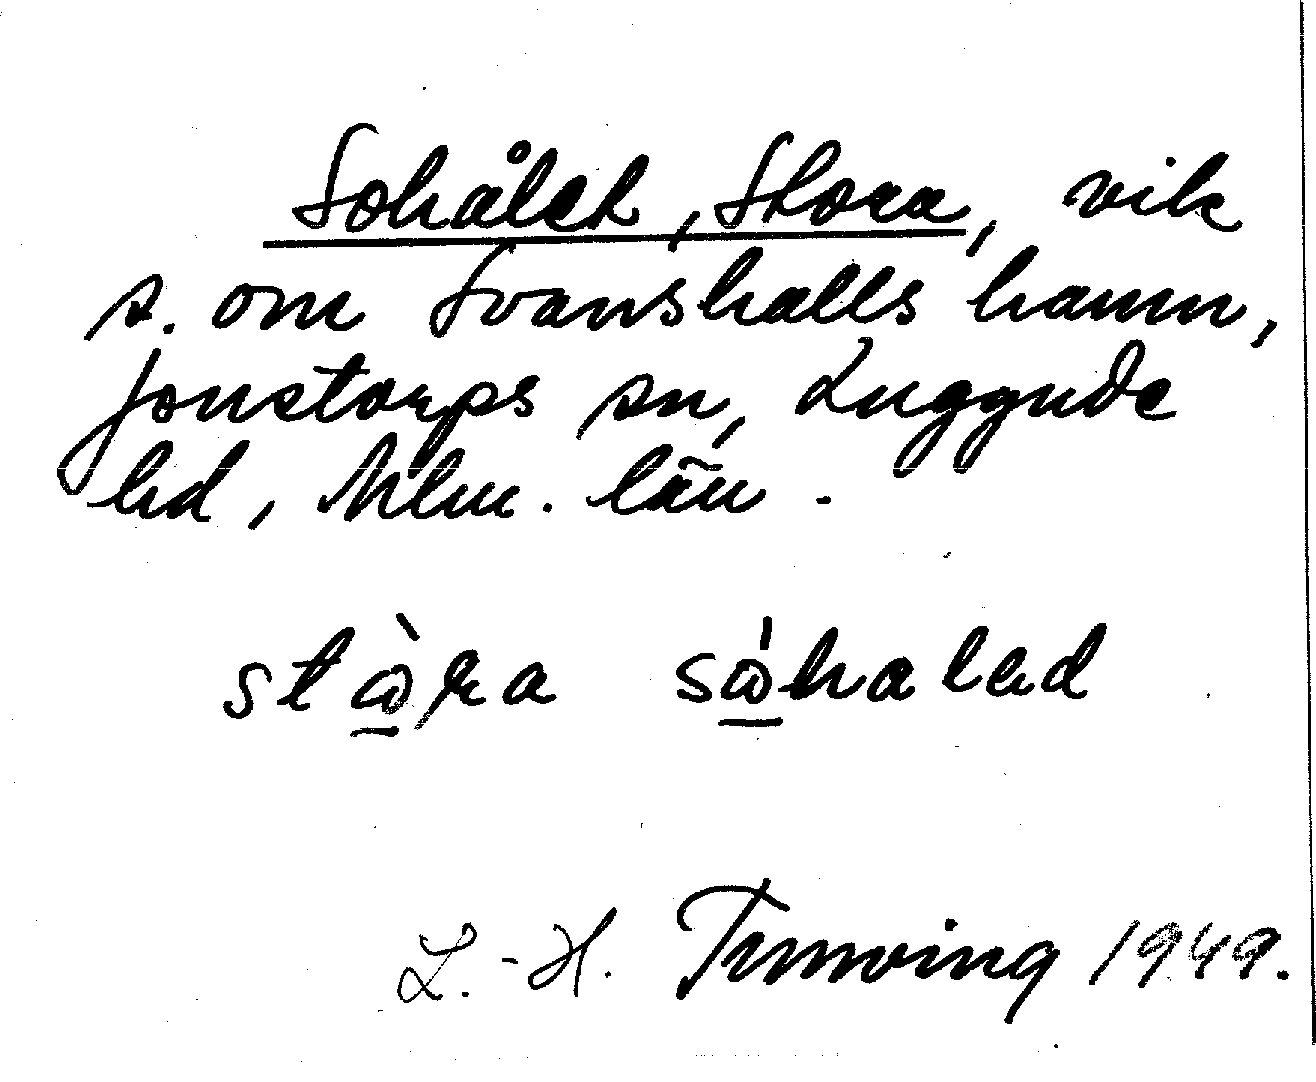 Sohålet, Stora, vik
s. om Svanshalls hamn,
Jonstorps sn, Luggude
hd, Mlm. län.
stὼ̠ra sώ̠haled
L.-H. 1949.